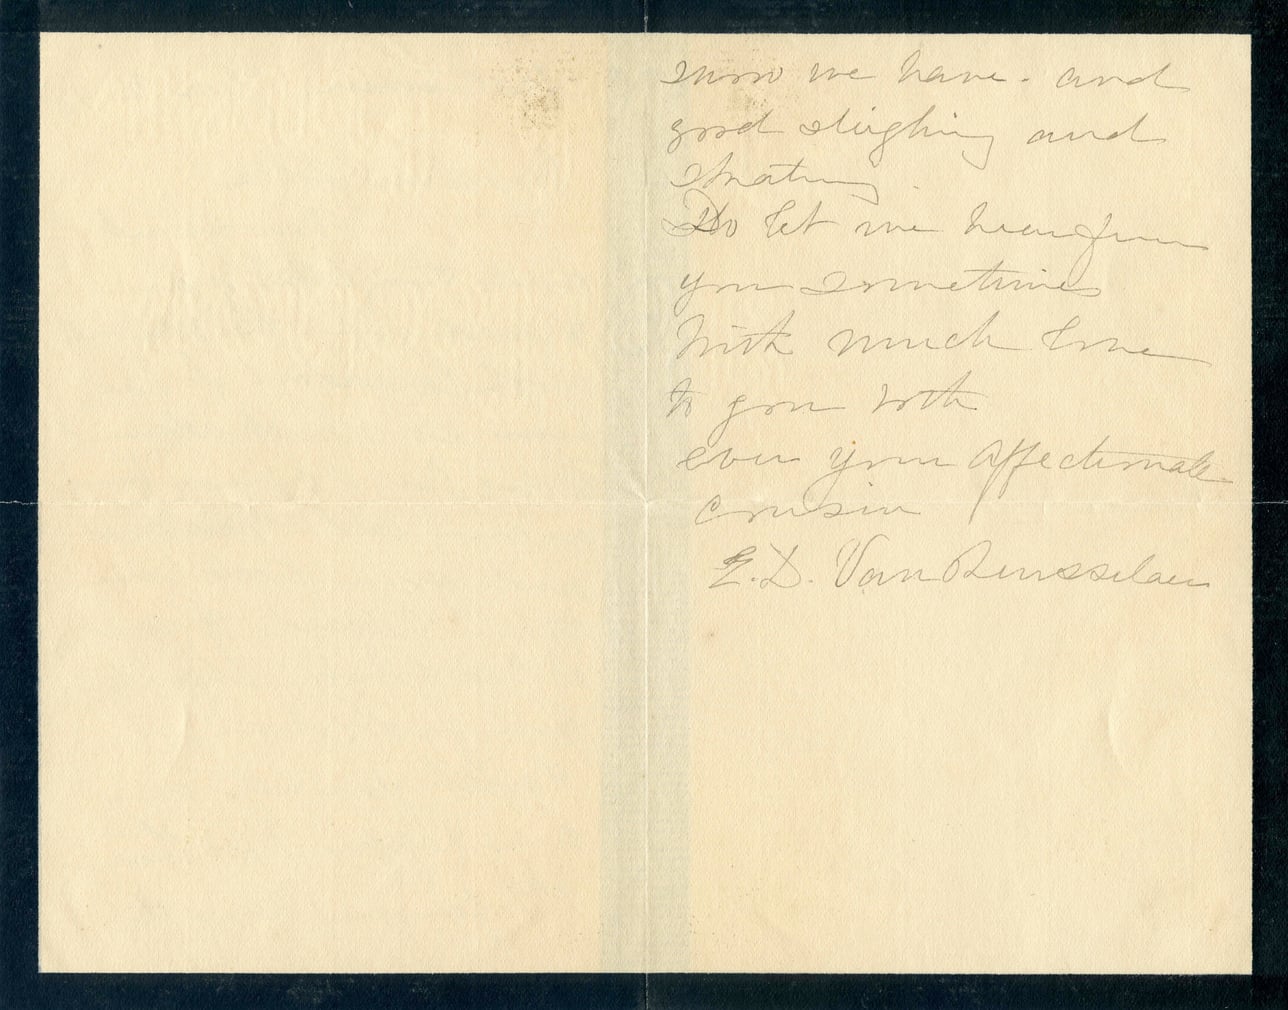 snow we have - and
good sleighing and
skating.
Do let me hear from
you sometimes
With much love
to you both
ever your affectionate
cousin
E. D. Van Rensselaer